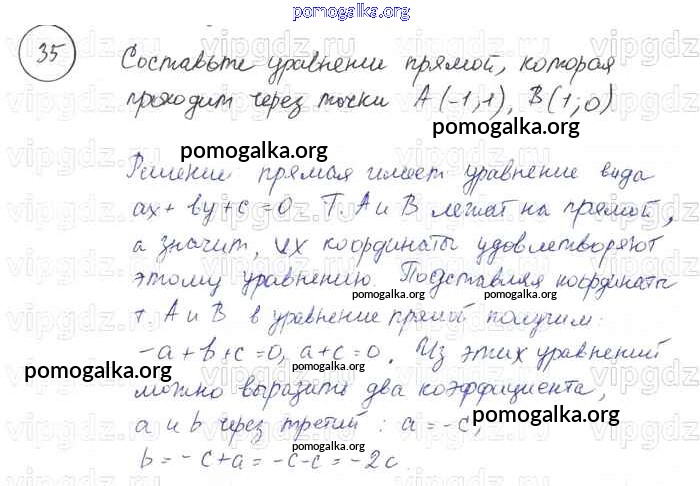 pomogalka.org
35
Составьте уравнение прямой, которая
проходит через точки A(-1;1), B(1;0)
pomogalka.org
pomogalka.org
Решение прямая имеет уравнение вида
ax+by+c=0 Т. A и B лежат на прямой,
а значит, их координаты удовлетворяют
этому уравнению. Подставляя координаты
pomogalka.org
pomogalka.org
т. A и B в уравнение прямой получим:
pomogalka.org
-a+b+c=0, a+c=0. Из этих уравнений
pomogalka.org
можно выразить два коэффициента,
a и b через третий: a=-c,
pomogalka.org
b=-c+a=-c-c=-2c.